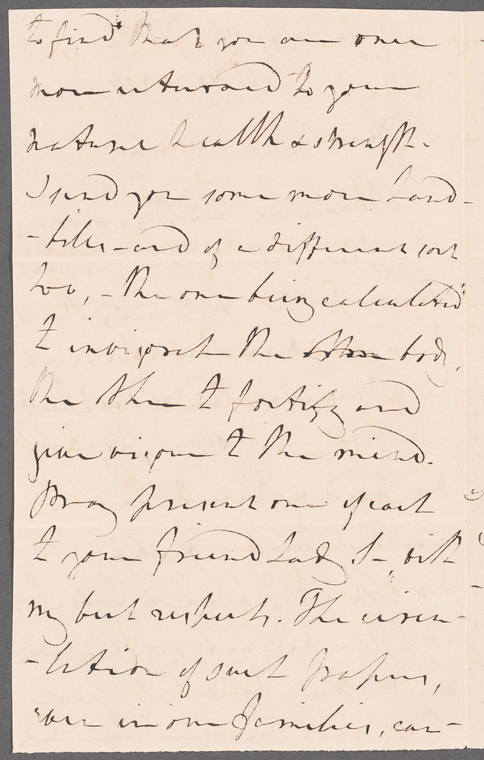 to find that you are once
more returned to your
natural health & strength.
I send you some more hand-
-bills - and of a different sort
too, - the one being calculated
to invigorate the body,
the other to fortify and
give vigour to the mind.
Pray present one of each
to your friend Lady S- with
my best respects. The circu-
-lation of such papers,
even in our families, can-